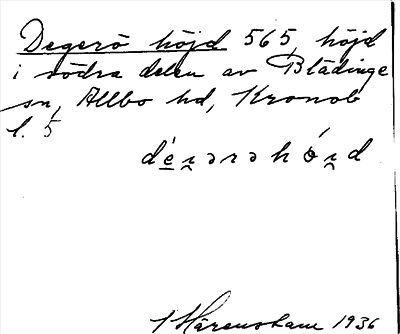 Degerö höjd 565, höjd
i södra delen av Blädinge
sn, Allbo hd, Kronob
l. 5
dé̱i̯ərəhói̯d
Härenstam 1936